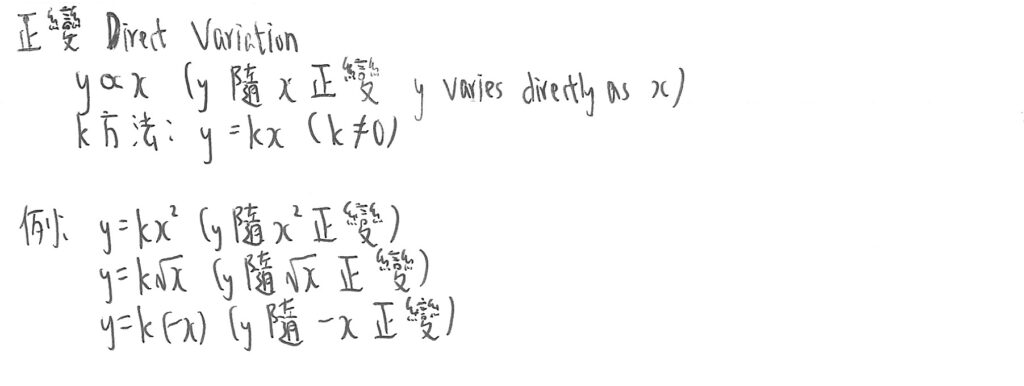 正變 Direct Variation
y∝x (y 隨 x 正變 y varies directly as x)
k方法: y=kx (k≠0)
例: y=kx² (y 隨 x² 正變)
y=k√x (y 隨 √x 正變)
y=k(-x) (y 隨 -x 正變)